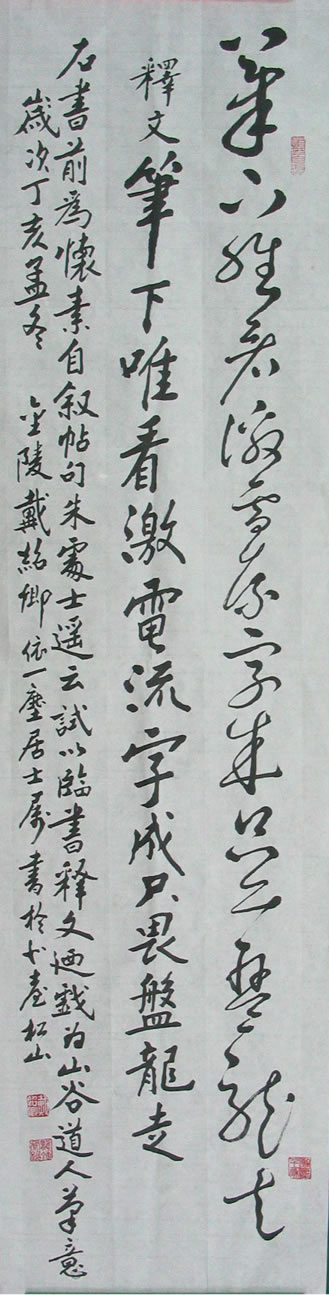 筆下唯看激電流字成只畏盤龍走
釋文筆下唯看激電流字成只畏盤龍走
右書前為懷素自叙帖句朱處士遥云試以臨書釋文迺戲为山谷道人筆意
歲次丁亥孟冬 金陵戴紹卿依一塵居士属書於小臺松山